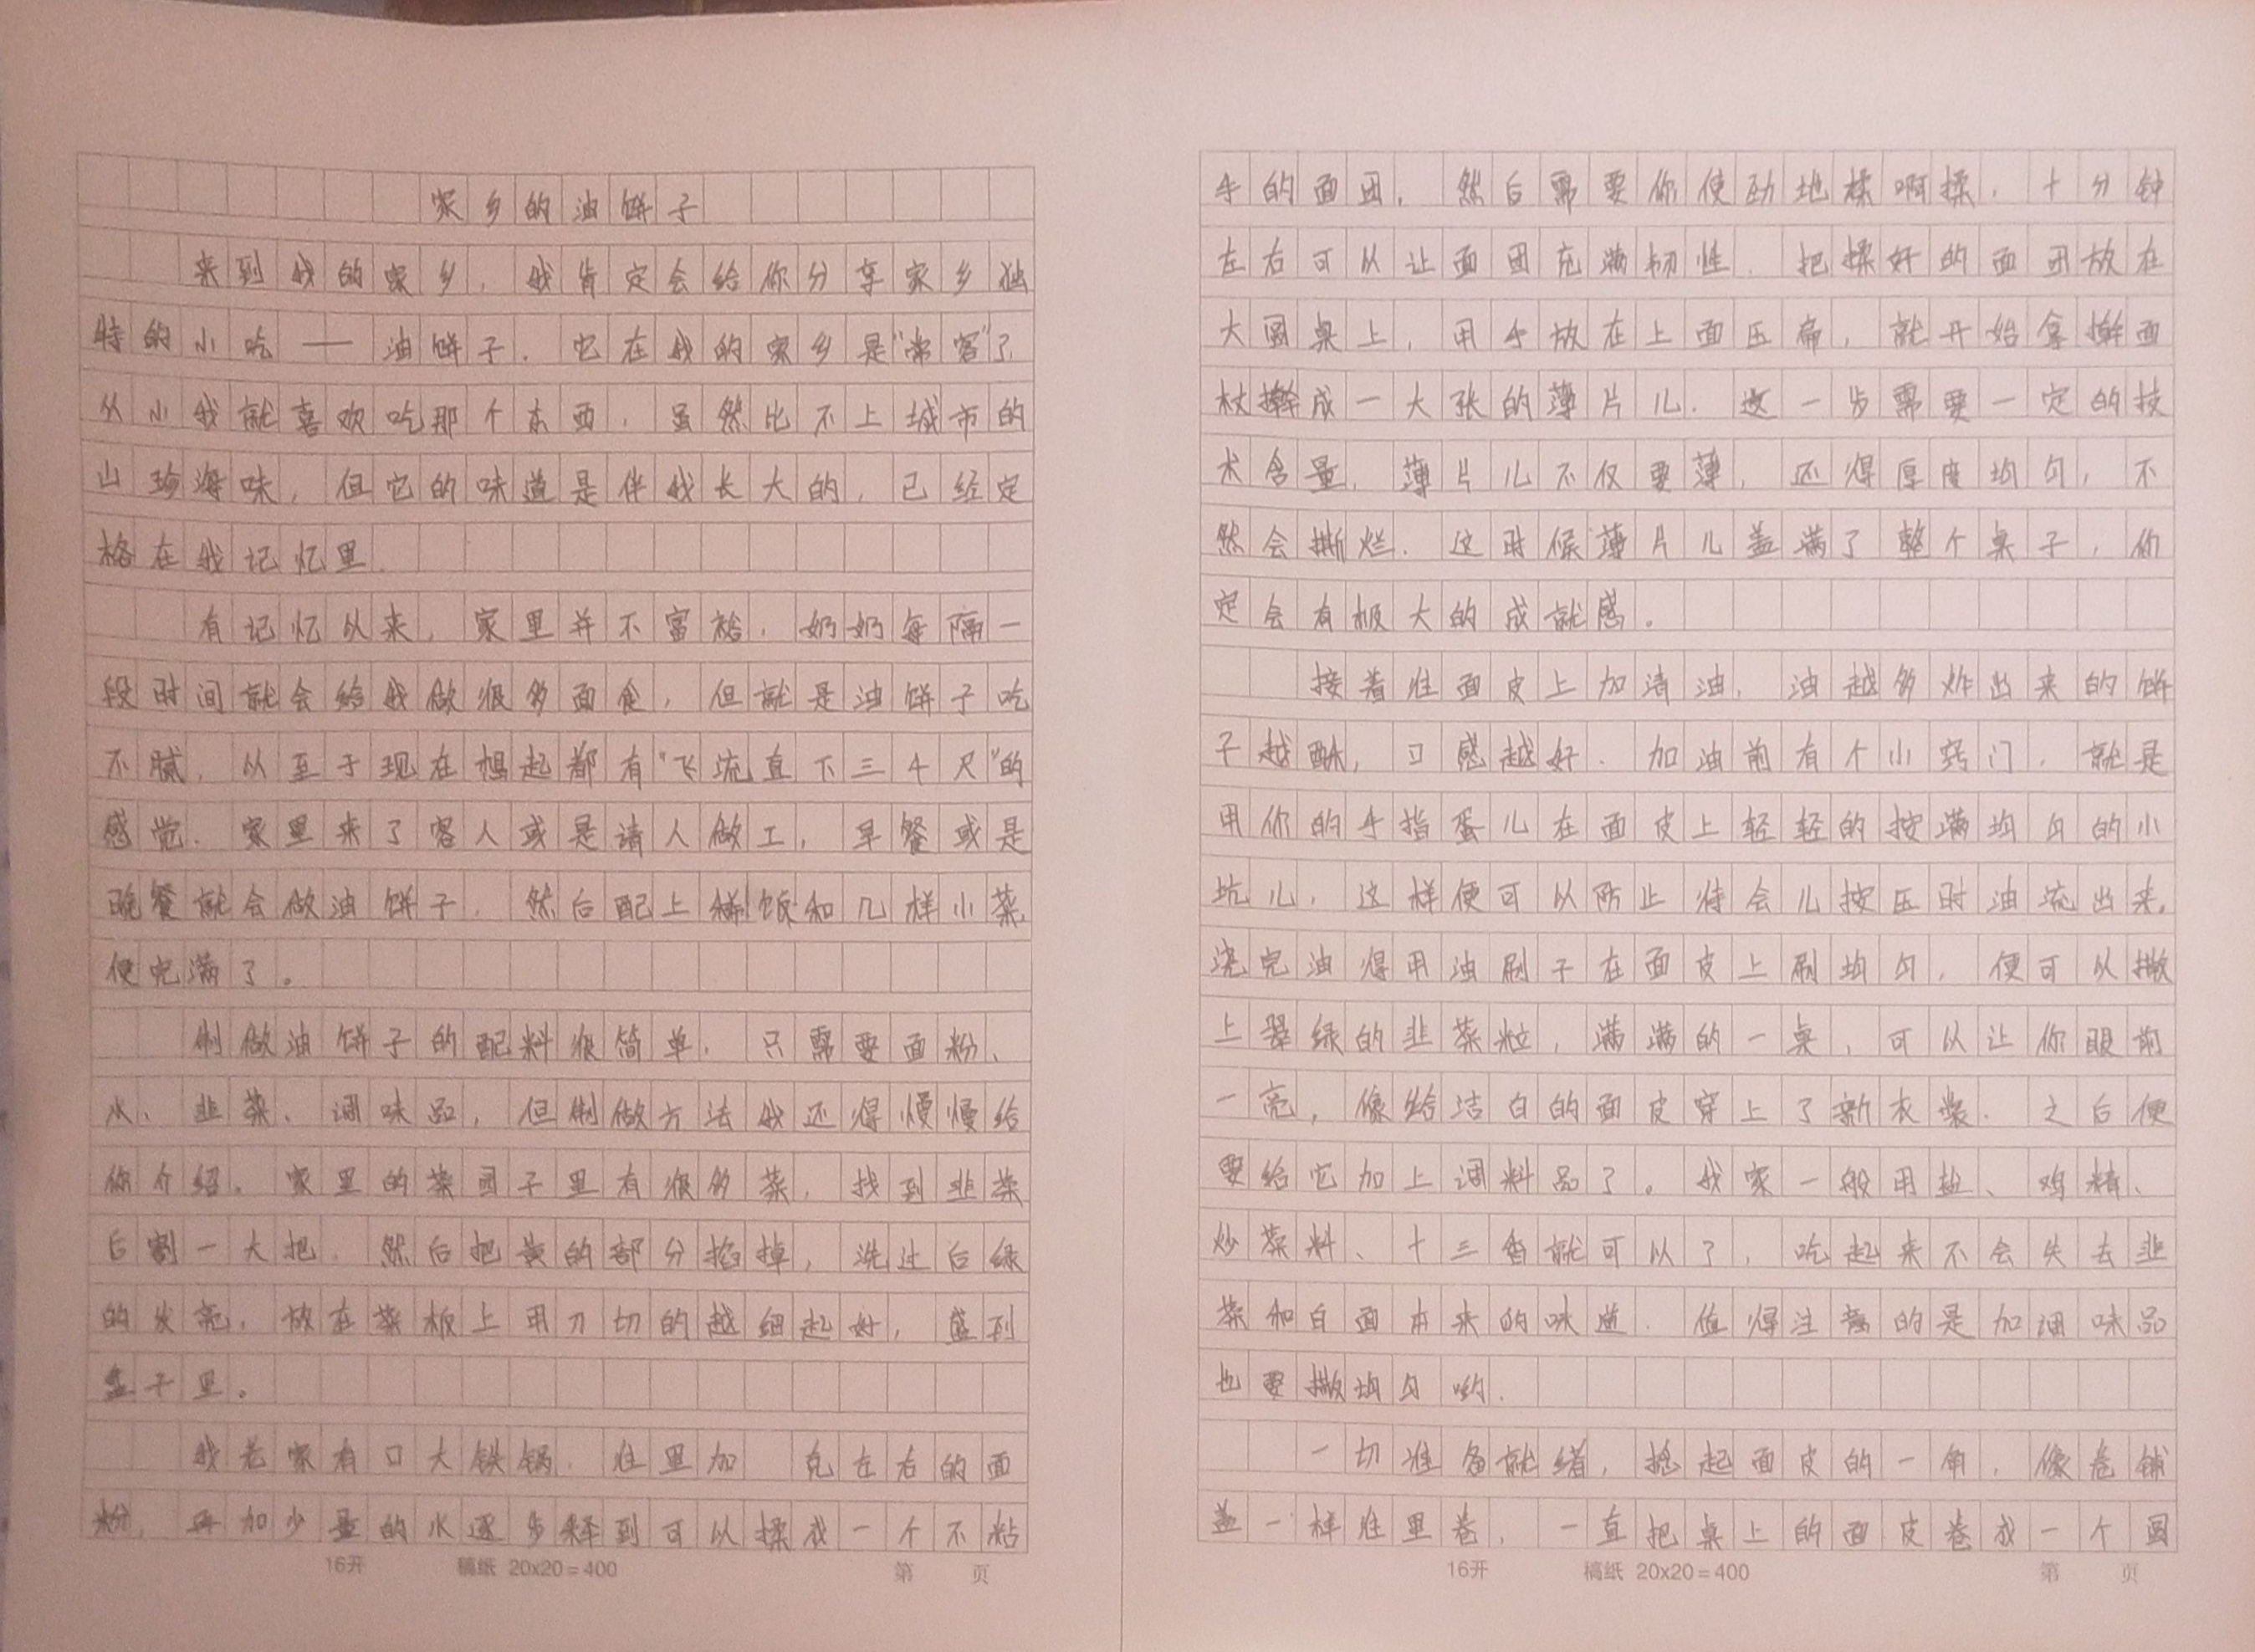 家乡的油饼子
来到我的家乡，我肯定会给你分享家乡独
特的小吃——油饼子．它在我的家乡是“常客”了．
从小我就喜欢吃那个东西，虽然比不上城市的
山珍海味，但它的味道是伴我长大的，已经定
格在我记忆里．
有记忆以来，家里并不富裕．奶奶每隔一
段时间就会给我做很多面食，但就是油饼子吃
不腻，以至于现在想起都有“飞流直下三千尺”的
感觉．家里来了客人或是请人做工，早餐或是
晚餐就会做油饼子．然后配上稀饭和几样小菜，
便完满了。
制做油饼子的配料很简单，只需要面粉、
水、韭菜、调味品，但制做方法我还得慢慢给
你介绍。家里的菜园子里有很多菜，找到韭菜
后割一大把．然后把黄的部分掐掉，洗过后绿
的发亮，放在菜板上用刀切的越细起好，盛到
盆子里。
我老家有口大铁锅．往里加 克左右的面
粉，再加少量的水逐步释到可以揉成一个不粘
手的面团．然后需要你使劲地揉啊揉，十分钟
左右可以让面团充满韧性．把揉好的面团放在
大圆桌上，用手放在上面压扁，就开始拿擀面
杖擀成一大张的薄片儿．这一步需要一定的技
术含量，薄片儿不仅要薄，还得厚度均匀，不
然会撕烂．这时候薄片儿盖满了整个桌子，你
定会有极大的成就感。
接着往面皮上加清油，油越多炸出来的饼
子越酥，口感越好．加油前有个小窍门，就是
用你的手指蛋儿在面皮上轻轻的按满均匀的小
坑儿，这样便可以防止待会儿按压时油流出来．
浇完油得用油刷子在面皮上刷均匀，便可以撒
上翠绿的韭菜粒，满满的一桌，可以让你眼前
一亮，像给洁白的面皮穿上了新衣裳．之后便
要给它加上调料品了。我家一般用盐、鸡精、
炒菜料、十三香就可以了，吃起来不会失去韭
菜和白面本来的味道．值得注意的是加调味品
也要撒均匀哟．
一切准备就绪，捻起面皮的一角，像卷铺
盖一样往里卷，一直把桌上的面皮卷成一个圆
16开 稿纸 20x20=400 第 页
16开 稿纸 20x20=400 第 页